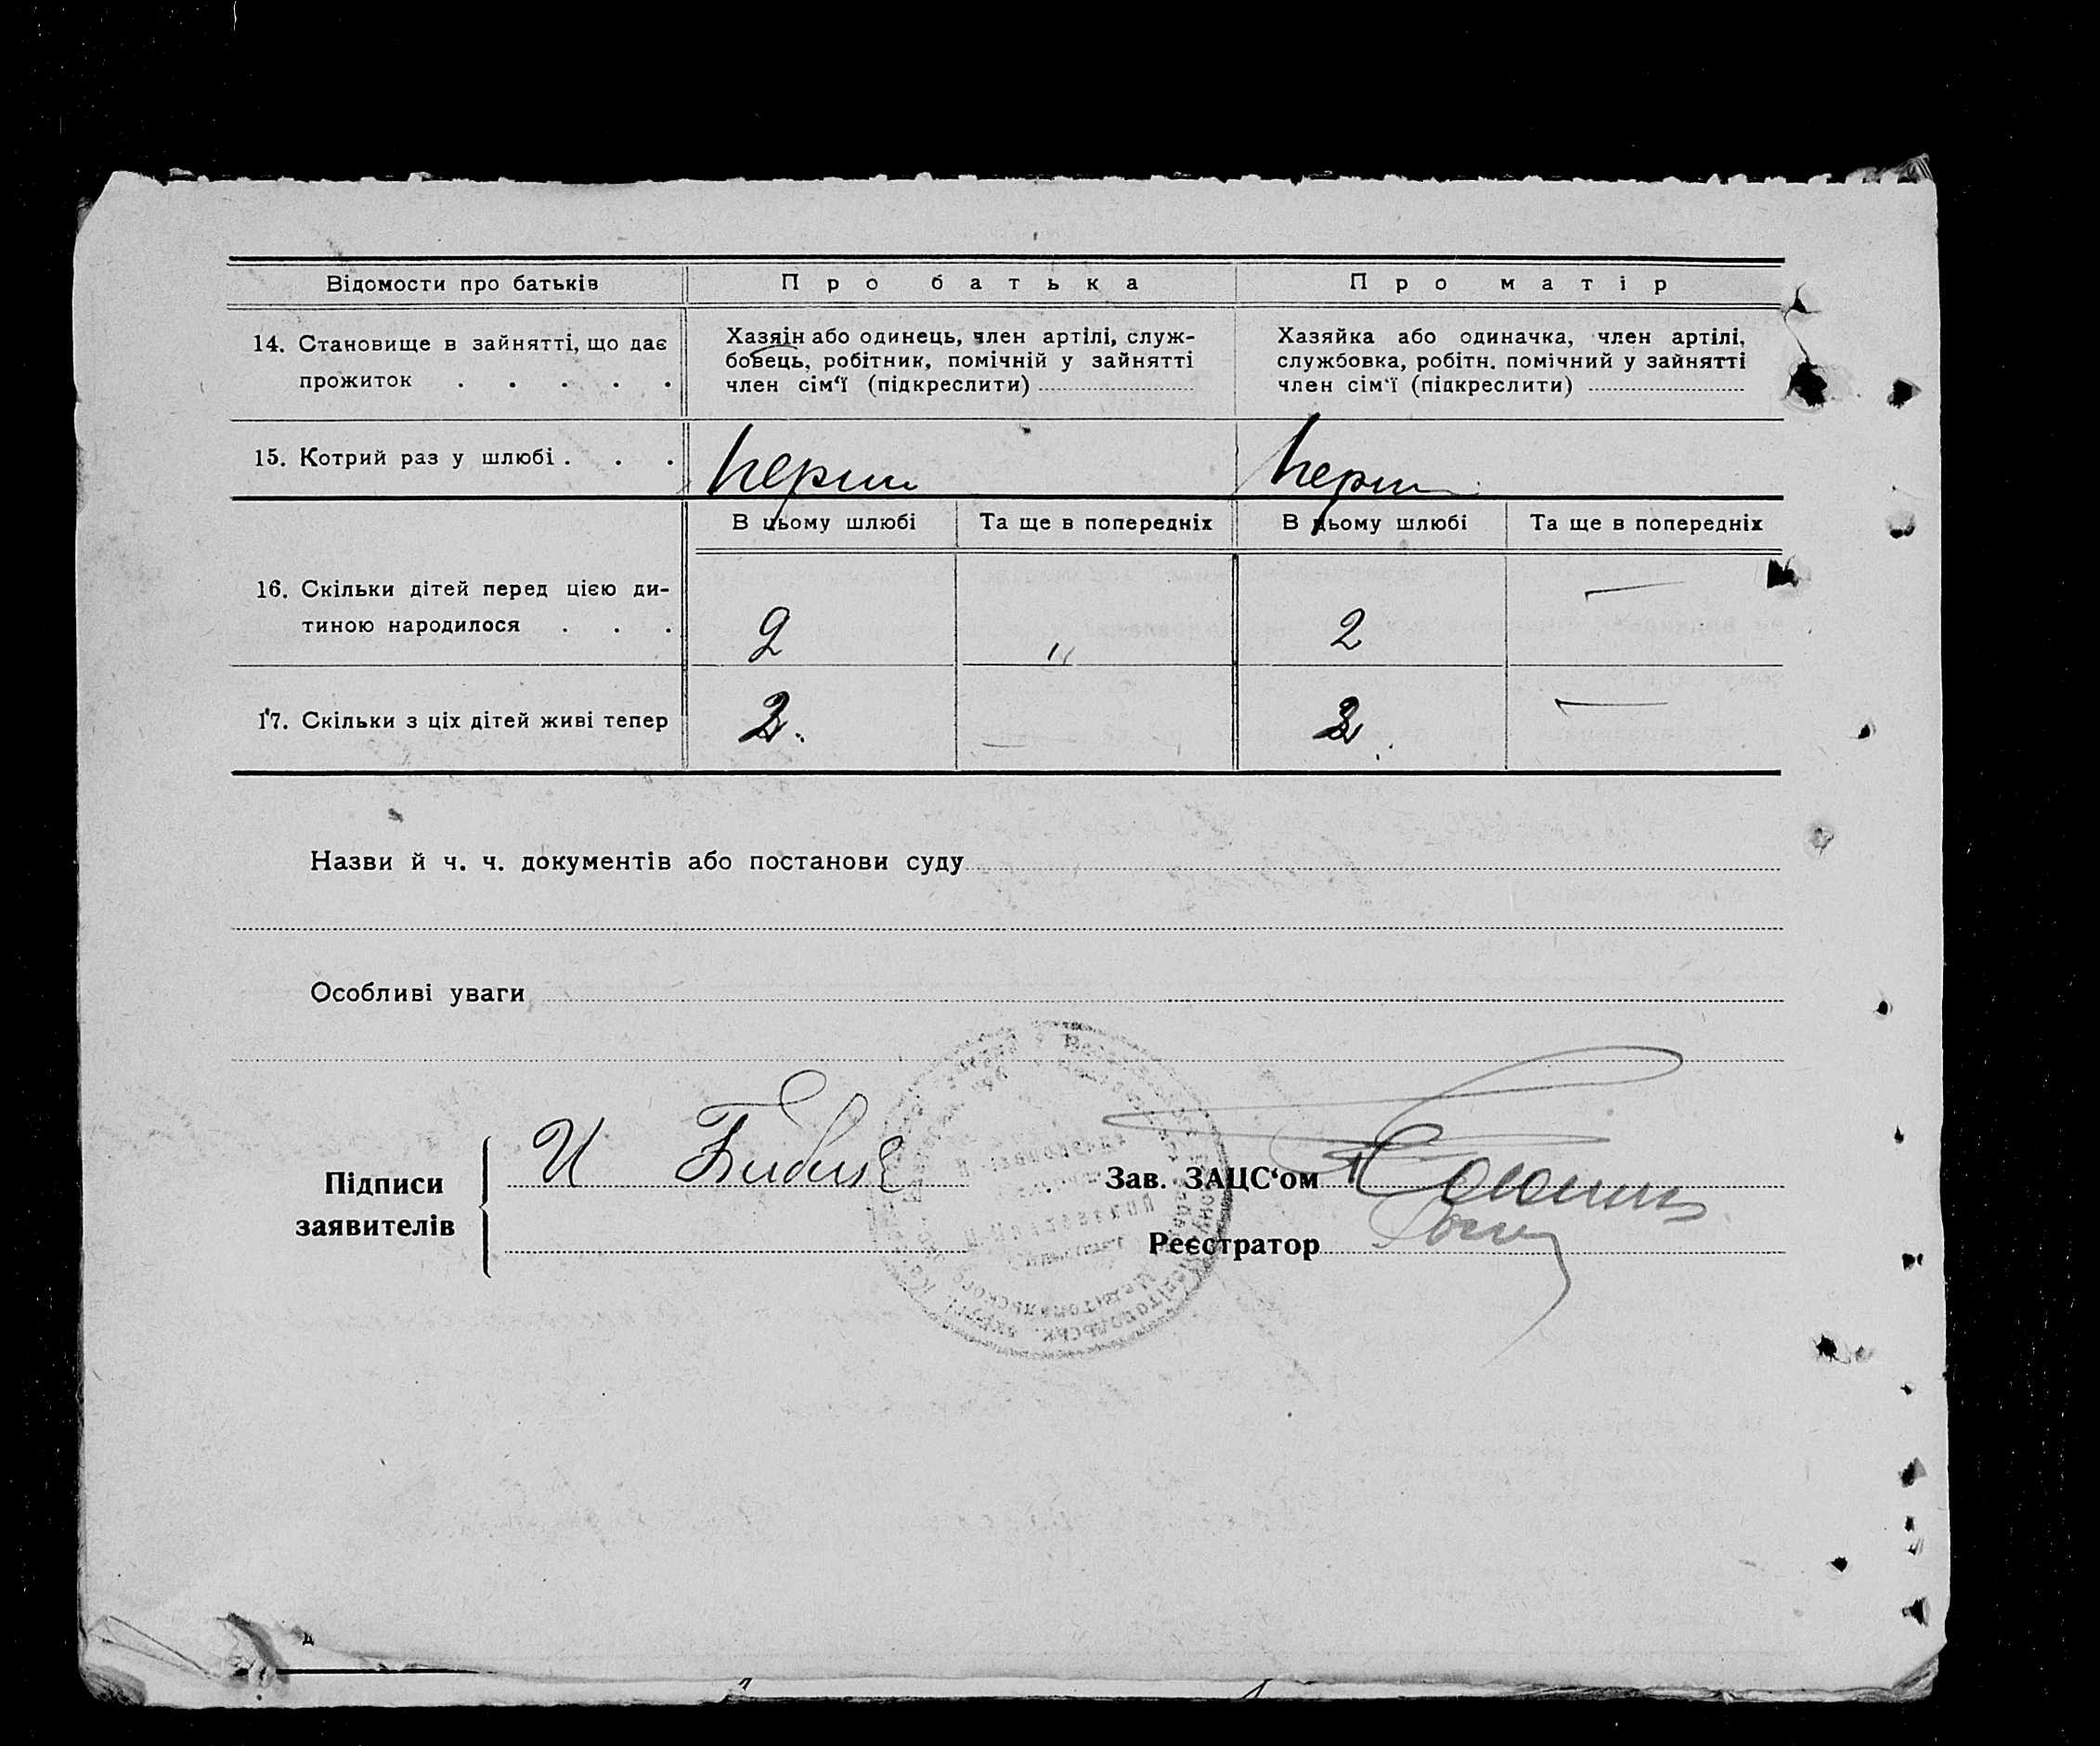 Відомости про батьків Про батька Про матір
14. Становище в зайнятті, що дає прожиток . . . . .
Хазяїн або одинець, член артілі, служ-
бовець, робітник, помічній у зайнятті
член сім'ї (підкреслити)
Хазяйка або одиначка, член артілі,
службовка, робітн. помічний у зайнятті
член сім'ї (підкреслити)
15. Котрий раз у шлюбі . . . перши перш
В цьому шлюбі Та ще в попередніх В цьому шлюбі Та ще в попередніх
16. Скільки дітей перед цією ди-
тиною народилося . . . 2 " 2 —
17. Скільки з ціх дітей живі тепер 2. — 2. —
Назви й ч. ч. документів або постанови суду
Особливі уваги
Підписи
заявителів
И
Зав. ЗАЦС'ом
Реєстратор